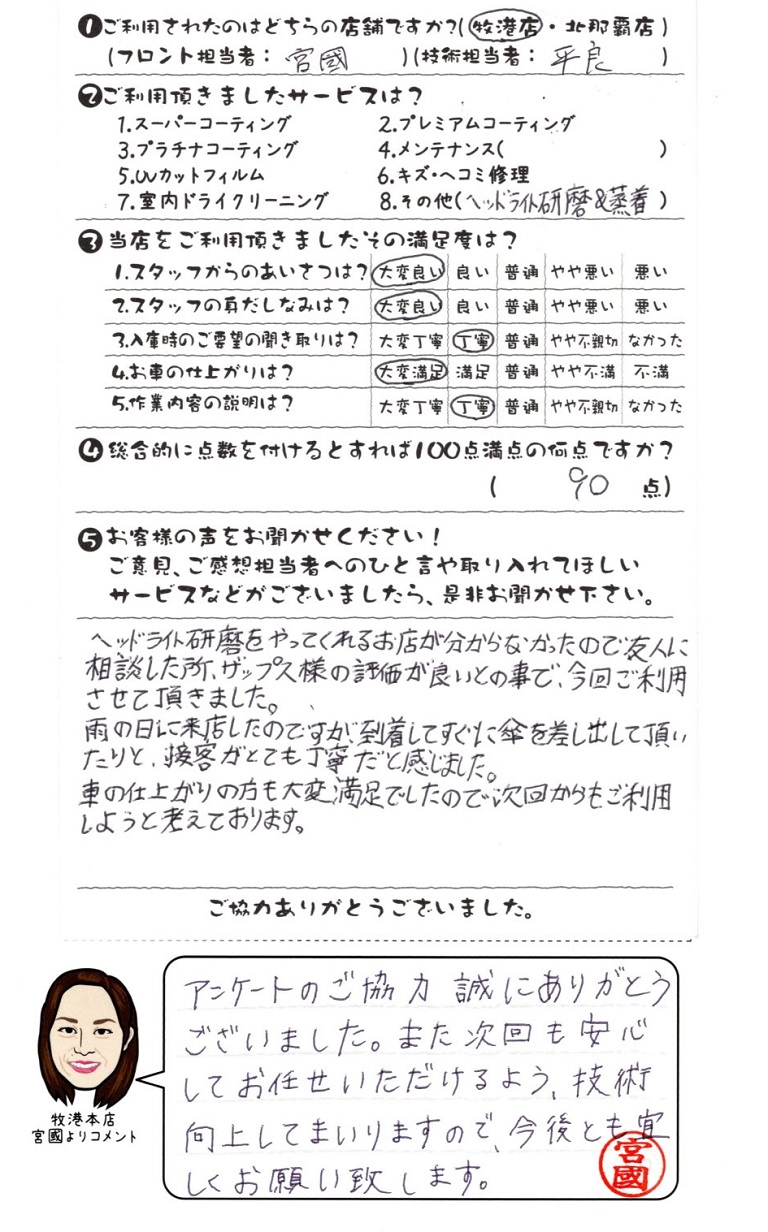 ❶ご利用されたのはどちらの店舗ですか?(牧港店・北那覇店)
(フロント担当者: 宮國 )(技術担当者: 平良 )
❷ご利用頂きましたサービスは?
1.スーパーコーティング 2.プレミアムコーティング
3.プラチナコーティング 4.メンテナンス( )
5.UVカットフィルム 6.キズ・ヘコミ修理
7.室内ドライクリーニング 8.その他(ヘッドライト研磨&蒸着)
❸当店をご利用頂きましたその満足度は?
1.スタッフからのあいさつは? 大変良い 良い 普通 やや悪い 悪い
2.スタッフの身だしなみは? 大変良い 良い 普通 やや悪い 悪い
3.入庫時のご要望の聞き取りは? 大変丁寧 丁寧 普通 やや不親切 なかった
4.お車の仕上がりは? 大変満足 満足 普通 やや不満 不満
5.作業内容の説明は? 大変丁寧 丁寧 普通 やや不親切 なかった
❹総合的に点数を付けるとすれば100点満点の何点ですか?
( 90 点)
❺お客様の声をお聞かせください!
ご意見、ご感想担当者へのひと言や取り入れてほしい
サービスなどがございましたら、是非お聞かせ下さい。
ヘッドライト研磨をやってくれるお店が分からなかったので友人に
相談した所、ザップス様の評価が良いとの事で、今回ご利用
させて頂きました。
雨の日に来店したのですが、到着してすぐに傘を差し出して頂い
たりと、接客がとても丁寧だと感じました。
車の仕上がりの方も大変満足でしたので次回からもご利用
しようと考えております。
ご協力ありがとうございました。
アンケートのご協力 誠にありがとう
ございました。また次回も安心
してお任せいただけるよう、技術
向上してまいりますので、今後とも宜
しくお願い致します。
宮國
牧港本店
宮國よりコメント